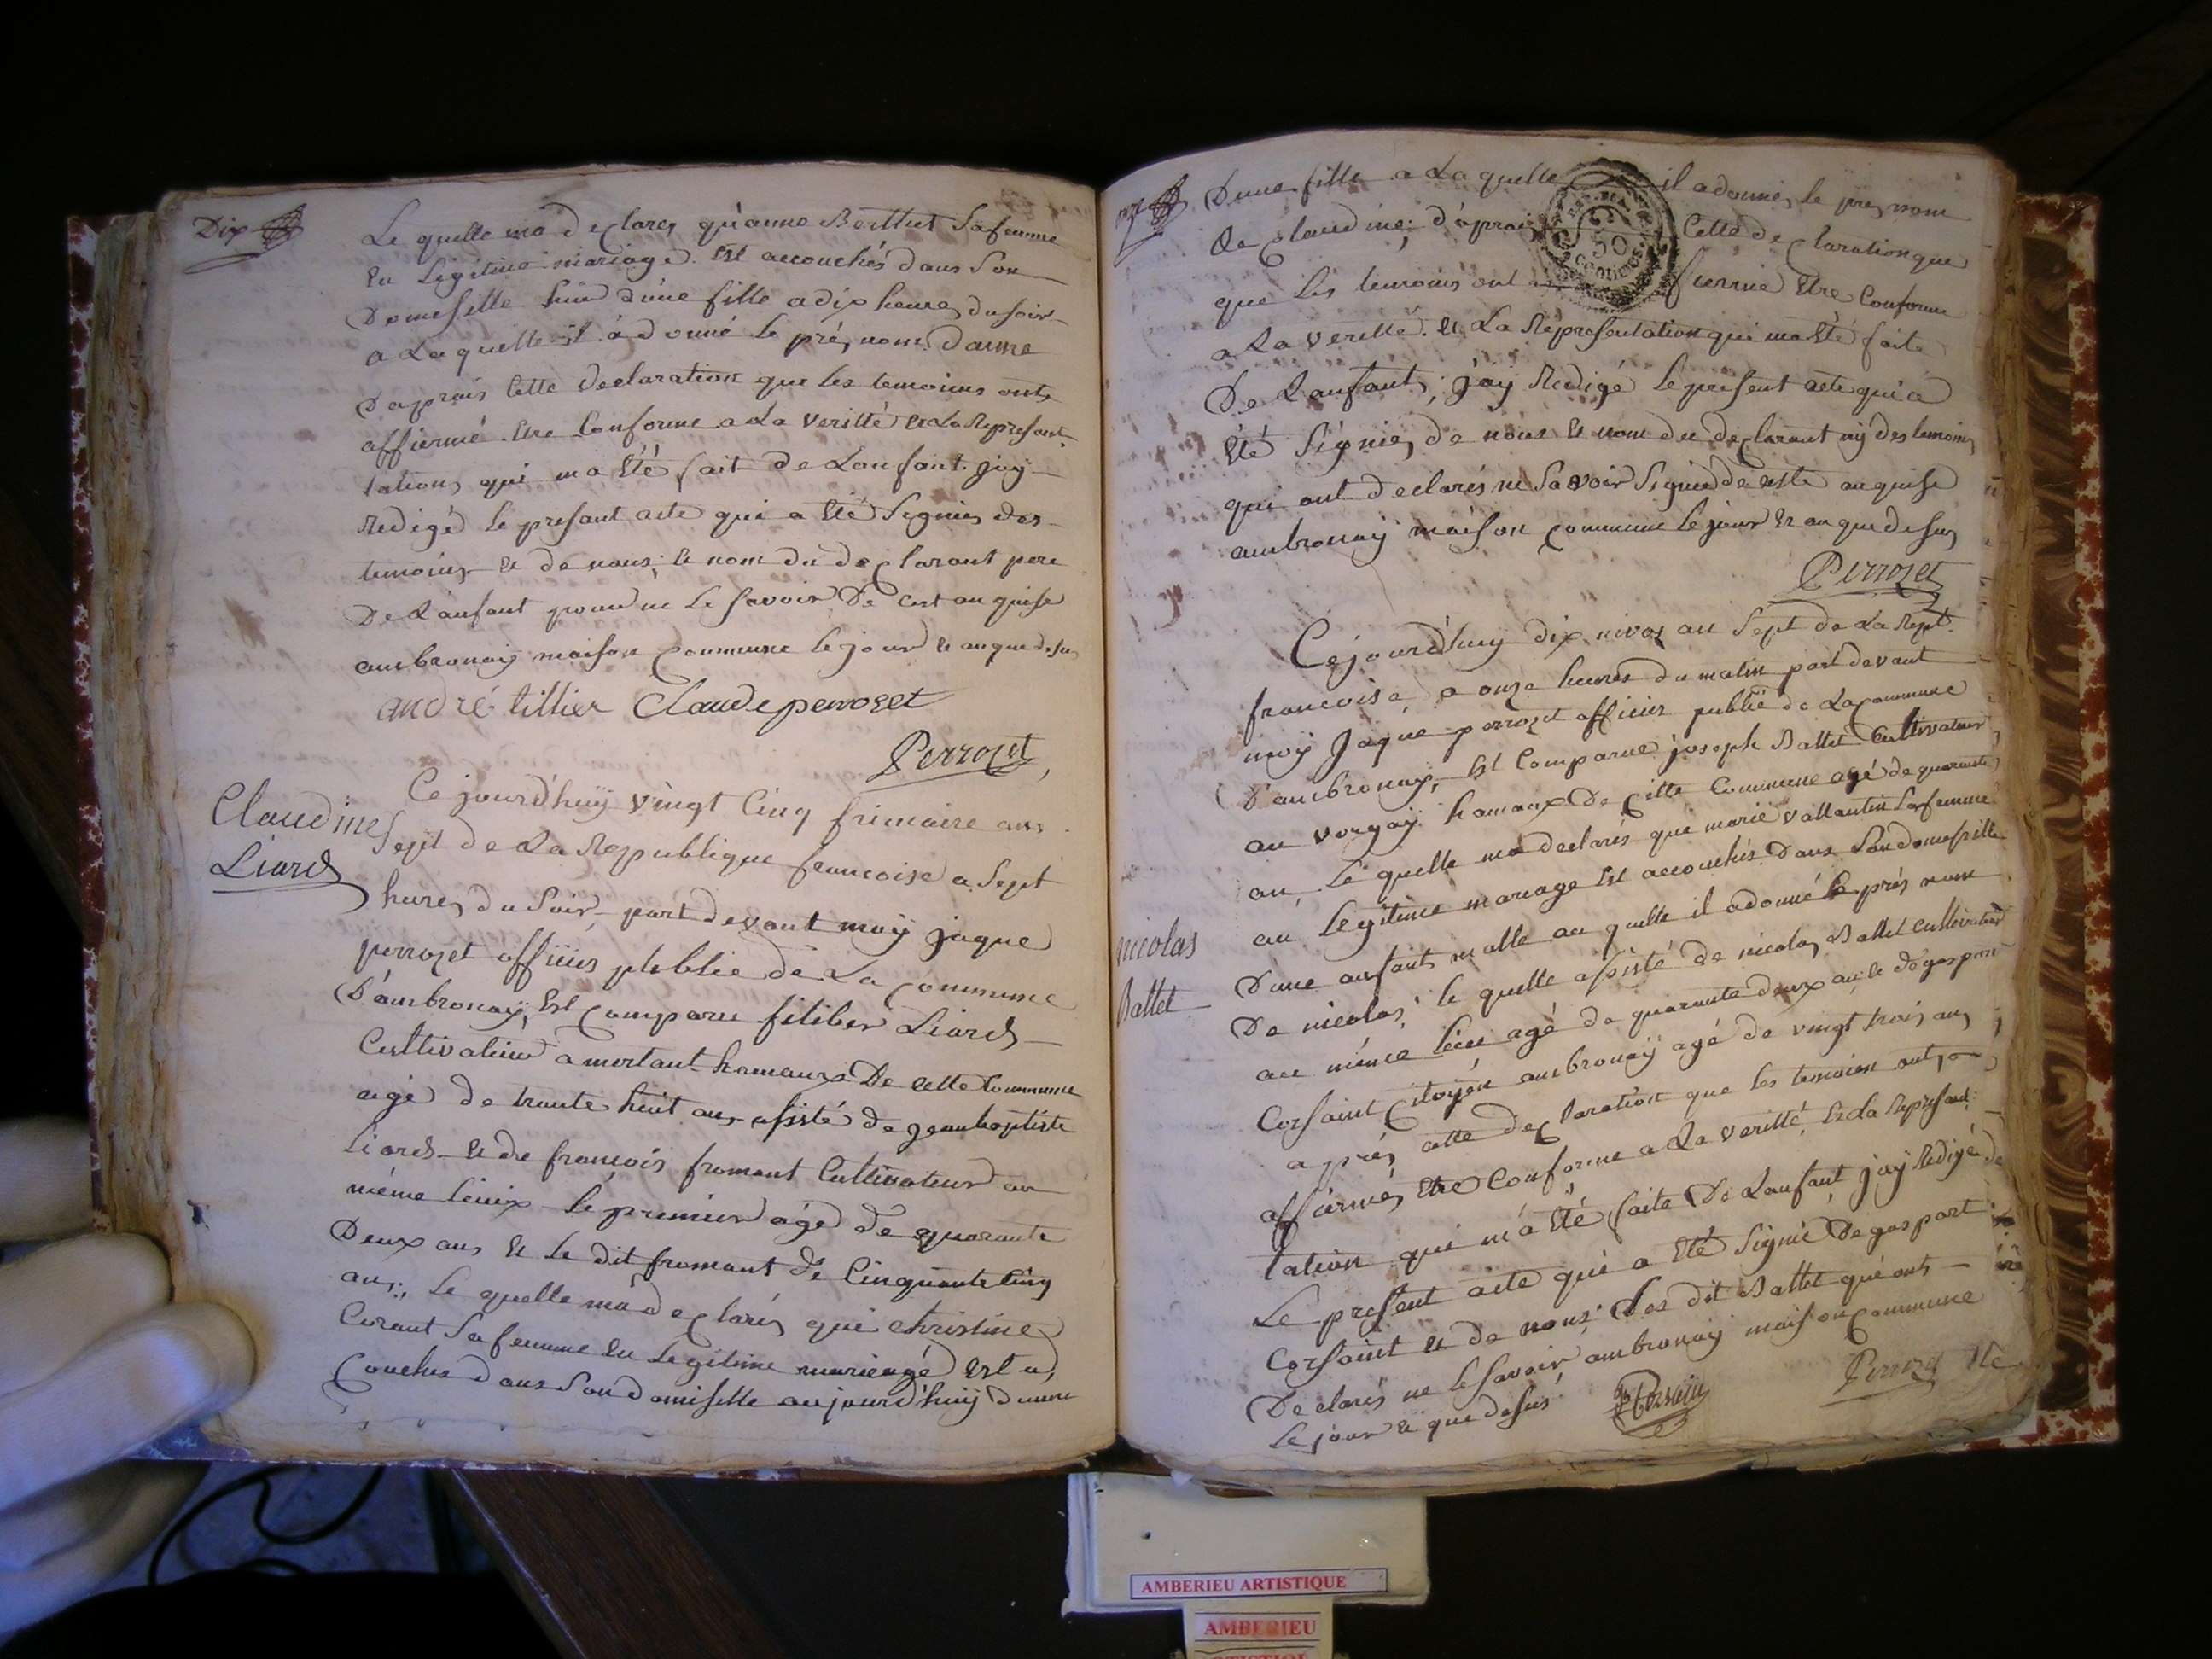 Dix
Le quelle ma declarez qu'anne Berthet Safemme
En Legitime mariage. Est accouchés dans Son
Domesille hier d'une fille a dix heures du soir
a Laquelle il à donné le pré, nom d'anne
D'aprais Cette declaration que les temoins onts
affiermé. Etre Conforme a La Verillé et La Represant-
tations, qui ma Eté fait de Lanfant. jay
Redigé le presant acte qui a Eté Signiés des
temoins et de nous; et nom du declarant pere
De L'anfant pour ne Le Savoir De cest anquise
ambronaÿ maison Commune le jour et an que desus
andré tillier Claude perrozet
Perrozet
Claudine
Liard
Ce jourd'huÿ vingt Cinq frimaire an
Sept de La Republique francoise a Sept
hures du Soir, part devant moÿ jaque
perrozet offiiés pleblie de La Commune
D'ambronaÿ, Est Comparu filiber Liard
Cultivateur a mertant hameaux De cette Commune
agé de trante huit ans, assisté de jeanbaptiste
Liard et de francois fromant Cultivateur au
même lieux le premier agé de quarante
Deux ans et le dit fromant de Cinquante Cinq
ans; Le quelle m'a declarés que Christine
Curant Sa femme En Legitime mariagé Est a,
Couchés dans Son domisille aujourd'huÿ d'une
onze
D'une fille a Laquelle il adonnés le pré, nom
de Claudine; d'aprais Cette declaration que
que Les temoins ont fiermé Etre Conforme
a La Verillé. et La Representation qui ma Eté faite
De Lanfant, j'aÿ Redigé le present acte qui a
Eté Signiés de nous et nom du declarant nÿ des temoins
qui ont declarés ne Savoir Signié de cette anquise
ambronaÿ maison Commune le jour et an que desus
Perrozet
nicolas
Battet
Ce jourd'huy dix nivos an Sept de La Rept.
francoise, a onze heures du matin part devant
moÿ Jaque perrozet offiiés publié de La Commune
D'ambronaÿ, Est Comparue joseph Battet Cultivateur
au vorgaÿ hamaux De Cette Commune agé de quarante
an, Le quelle ma declarés que marie vallantin Safemme
an Legitime mariage Est accouchés Dans Sondomesille
D'une anfant malle au quelle il adonné le prés nom
De nicolas, le quelle assisté de nicolas Battet cultivateur
au même lieu agé de quarante deux an, et de gaspart
Corsaint Citoyén ambronaÿ agé de vingt trois ans
après cette declaration que les temoins ont, a
affiermés Etre Conforme a La verillé, Et La Represant-
tation qui m'a Eté faite De Lanfant jaÿ Redigé de
Le present acte qui a Eté Signié De gaspart
Corsaint et de nous. Les dit Battet qui ont
Declarés ne le Savoir ambronaÿ maison Commune
Le jour et que desus
Corsain
Perrozet
AMBERIEU ARTISTIQUE
AMBERIEU
ARTISTIQUE